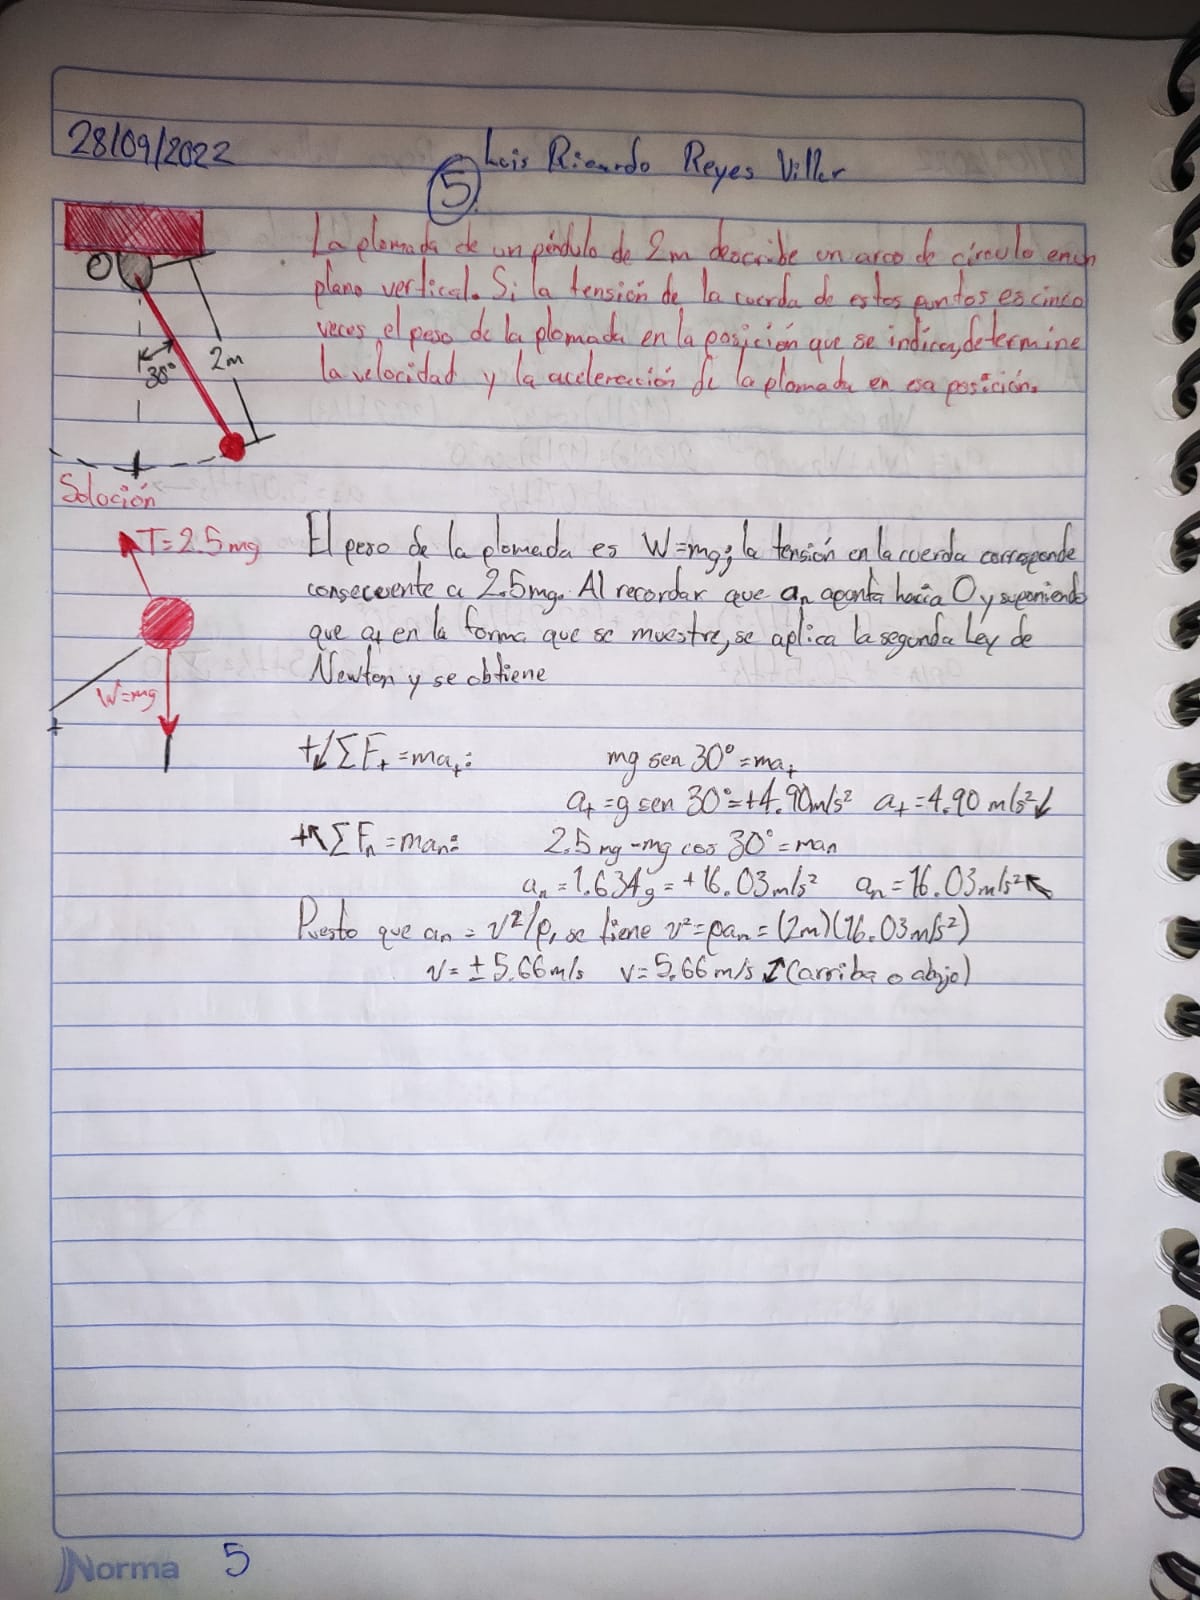 28/09/2022
Luis Ricardo Reyes Villar
5
La plomada de un péndulo de 2m describe un arco de círculo en un
plano vertical. Si la tensión de la cuerda de estos puntos es cinco
veces el peso de la plomada en la posición que se indica, determine
la velocidad y la aceleración de la plomada en esa posición.
O
30°
2m
Solución
T=2.5mg
W=mg
El peso de la plomada es W=mg; la tensión en la cuerda corresponde
consecuente a 2.5mg. Al recordar que an apunta hacia O y suponiendo
que at en la forma que se muestre, se aplica la segunda Ley de
Newton y se obtiene
+↙ΣFt=mat: mg sen 30°=mat
at=g sen 30°=+4.90m/s² at=4.90 m/s²↙
+↖ΣFn=man: 2.5mg-mg cos 30°=man
an=1.634g=+16.03m/s² an=16.03m/s²↖
Puesto que an=v²/ρ, se tiene v²=ρan=(2m)(16.03m/s²)
v=±5.66m/s v=5.66m/s ↕(arriba o abajo)
Norma 5